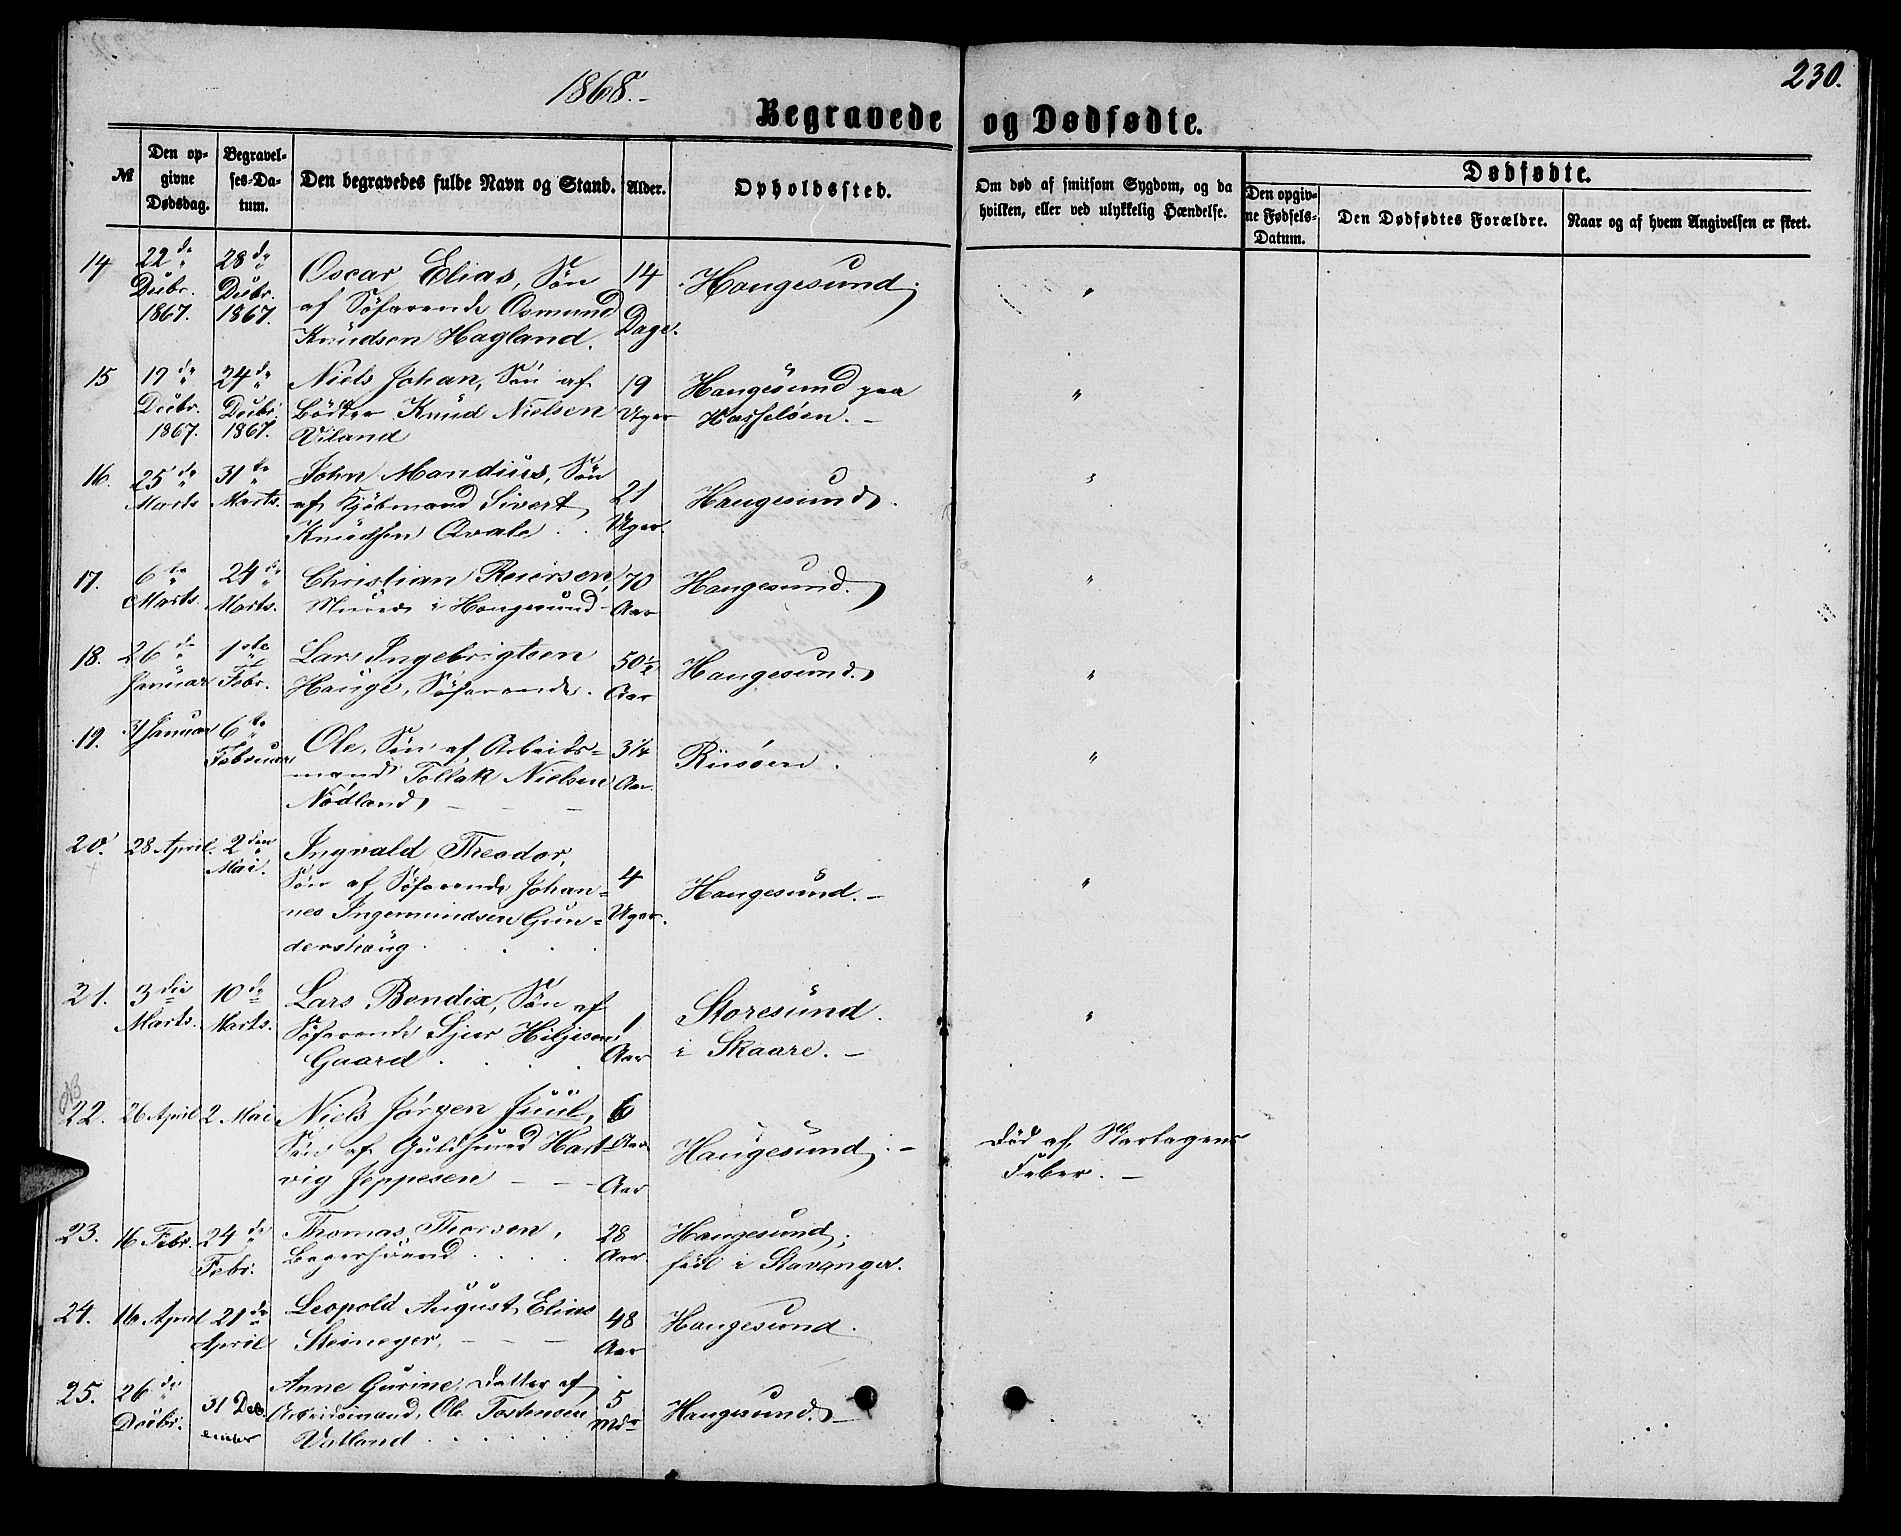 1868.-
230.
Begravede og Dødfødte.
№
Den op-
givne
Dødsdag.
Begravel-
ses-Da-
tum.
Den begravedes fulde Navn og Stand.
Alder.
Opholdssted.
Om død af smitsom Sygdom, og da
hvilken, eller ved ulykkelig Hændelse.
Dødfødte.
Den opgiv-
ne Fødsels-
Datum.
Den Dødfødtes Forældre.
Naar og af hvem Angivelsen er skeet.
14 22de Decbr. 1867. 28de Decbr. 1867.
Oscar Elias, Søn
af Søfarende Osmund
Knudsen Hagland.
14 Dage.
Haugesund. "
15 19de Decbr. 1867. 24de Decbr. 1867.
Niels Johan, Søn af
Bödker Knud Nielsen
Viland
19 Uger
Haugesund paa
Hasseløen. - "
16. 25de Marts 31te Marts.
John Mandius, Søn
af Kjøbmand Sivert
Knudsen Qvale . .
21 Uger.
Haugesund. "
17. 6te Marts. 24de Marts.
Christian Reiersen,
Murer i Haugesund
70 Aar
Haugesund. "
18. 26de Januar 1ste Febr.
Lars Ingebrigtsen
Hauge, Søfarende.
50½ Aar
Haugesund. "
19. 31 Januar 6te Februar
Ole, Søn af Arbeids-
mand Tollak Nielsen
Nødland, - - -
3¼ Aar.
Risøen. "
20. 28 April. 2den Mai.
Ingvald Theodor,
Søn af Søfarende Johan-
nes Ingemundsen Gun-
dershaug . . . .
4 Uger.
Haugesund. - "
21. 3die Marts. 10de Marts.
Lars Bendix, Søn af
Søfarende Sjur Hiljesen
Gaard . . . .
1 Aar
Storesund.
i Skaare. - "
NB
22. 26 April 2 Mai
Niels Jørgen Juul,
Søn af Guldsmed Hart-
vig Jeppesen - - -
6 Aar
Aar
Haugesund. -
Død af Skarlagens
Feber. -
23. 16 Febr. 24de Febr.
Thomas Thorsen,
Bagersvend . . .
28 Aar.
Haugesund;
født i Stavanger.
24. 16 April 21de April
Leopold August Elias
Steineger, - - -
48 Aar
Haugesund.
25. 26de Decbr. 31 Dec
ember
Anne Gurine, Datter af
Arbeidsmand Ole Tostensen
Vatland . . . . .
5 Mdr
Haugesund. -